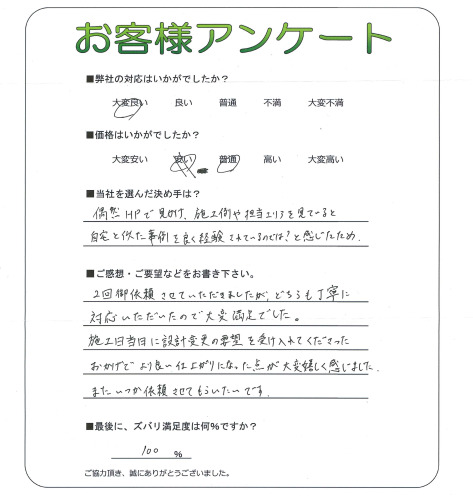 お客様アンケート
■弊社の対応はいかがでしたか？
大変良い 良い 普通 不満 大変不満
■価格はいかがでしたか？
大変安い 安い 普通 高い 大変高い
■当社を選んだ決め手は？
偶然HPで見かけ、施工例や担当エリアを見ていると
自宅と似た事例を良く経験されているのでは？と感じたため.
■ご感想・ご要望などをお書き下さい。
2回御依頼させていただきましたが、どちらも丁寧に
対応いただいたので大変満足でした。
施工日当日に設計変更の要望を受け入れてくださった
おかげでより良い仕上がりになった点が大変嬉しく感じました.
またいつか依頼させてもらいたいです.
■最後に、ズバリ満足度は何%ですか？
100 %
ご協力頂き、誠にありがとうございました。